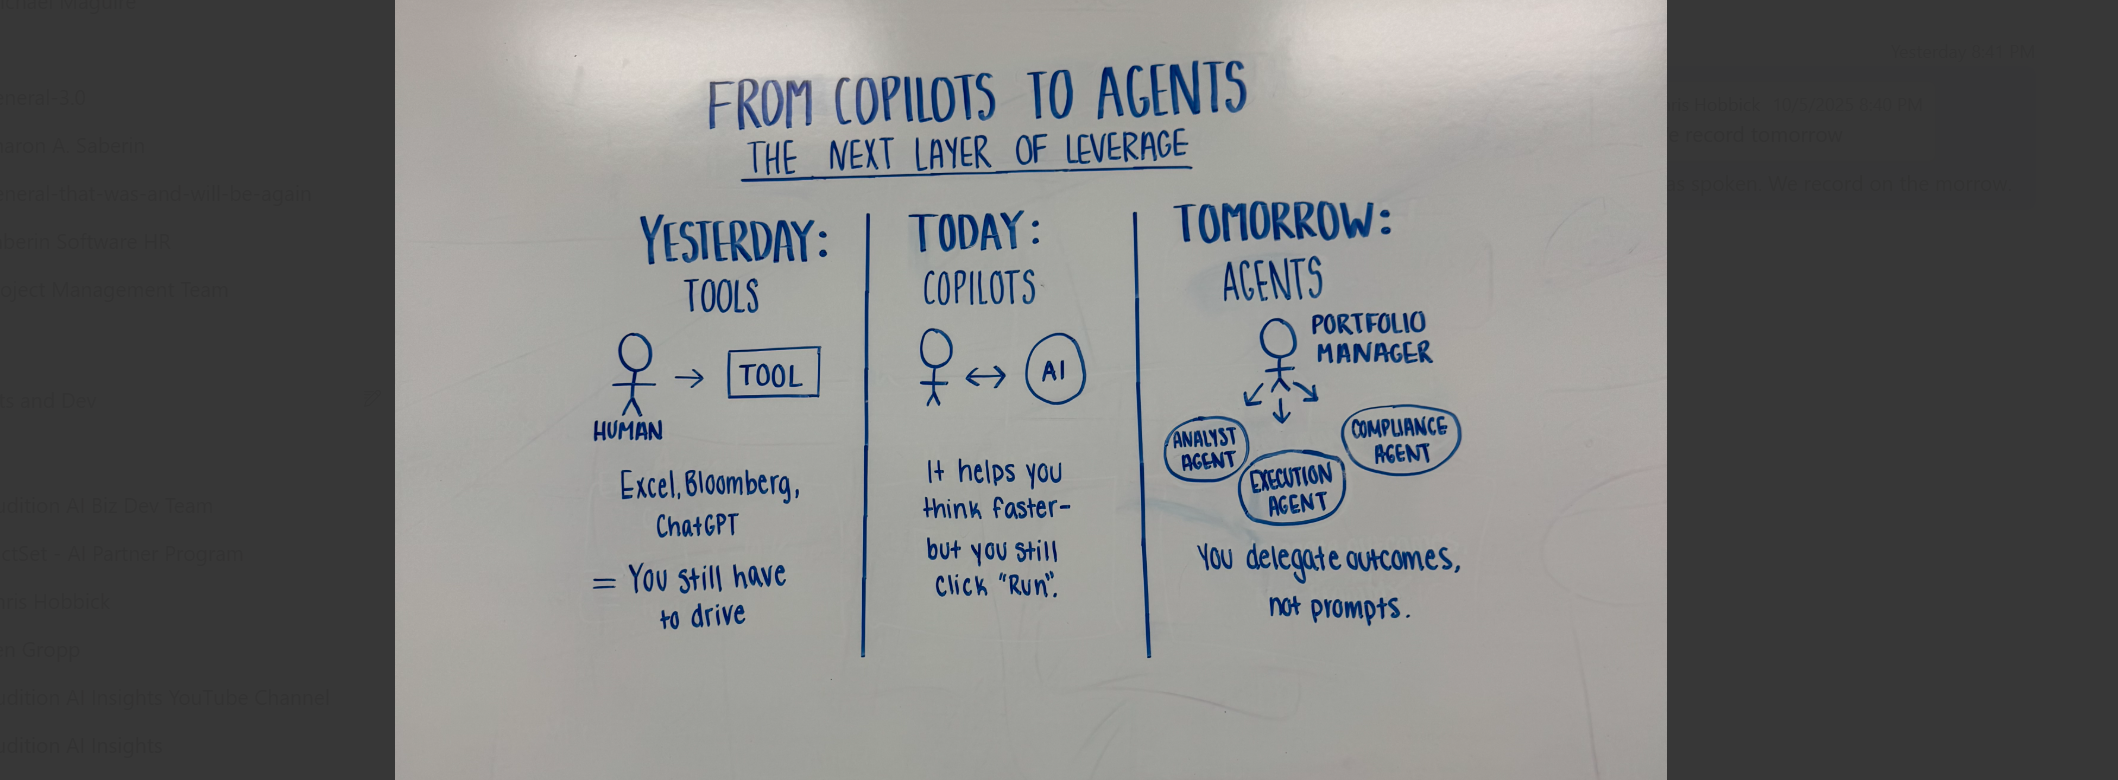 FROM COPILOTS TO AGENTS
THE NEXT LAYER OF LEVERAGE
YESTERDAY:
TOOLS
TOOL
HUMAN
Excel, Bloomberg,
ChatGPT
= You still have
to drive
TODAY:
COPILOTS
AI
It helps you
think faster-
but you still
click "Run".
TOMORROW:
AGENTS
PORTFOLIO
MANAGER
ANALYST
AGENT
EXECUTION
AGENT
COMPLIANCE
AGENT
You delegate outcomes,
not prompts.
aron A. Saberin
eneral-that-was-and-will-be-again
Software HR
oject Management Team
ts and Dev
dition AI Biz Dev Team
ctSet - AI Partner Program
Hobbick
Gropp
dition AI Insights YouTube Channel
dition AI Insights
Hobbick
record tomorrow
as spoken. We record on the morrow